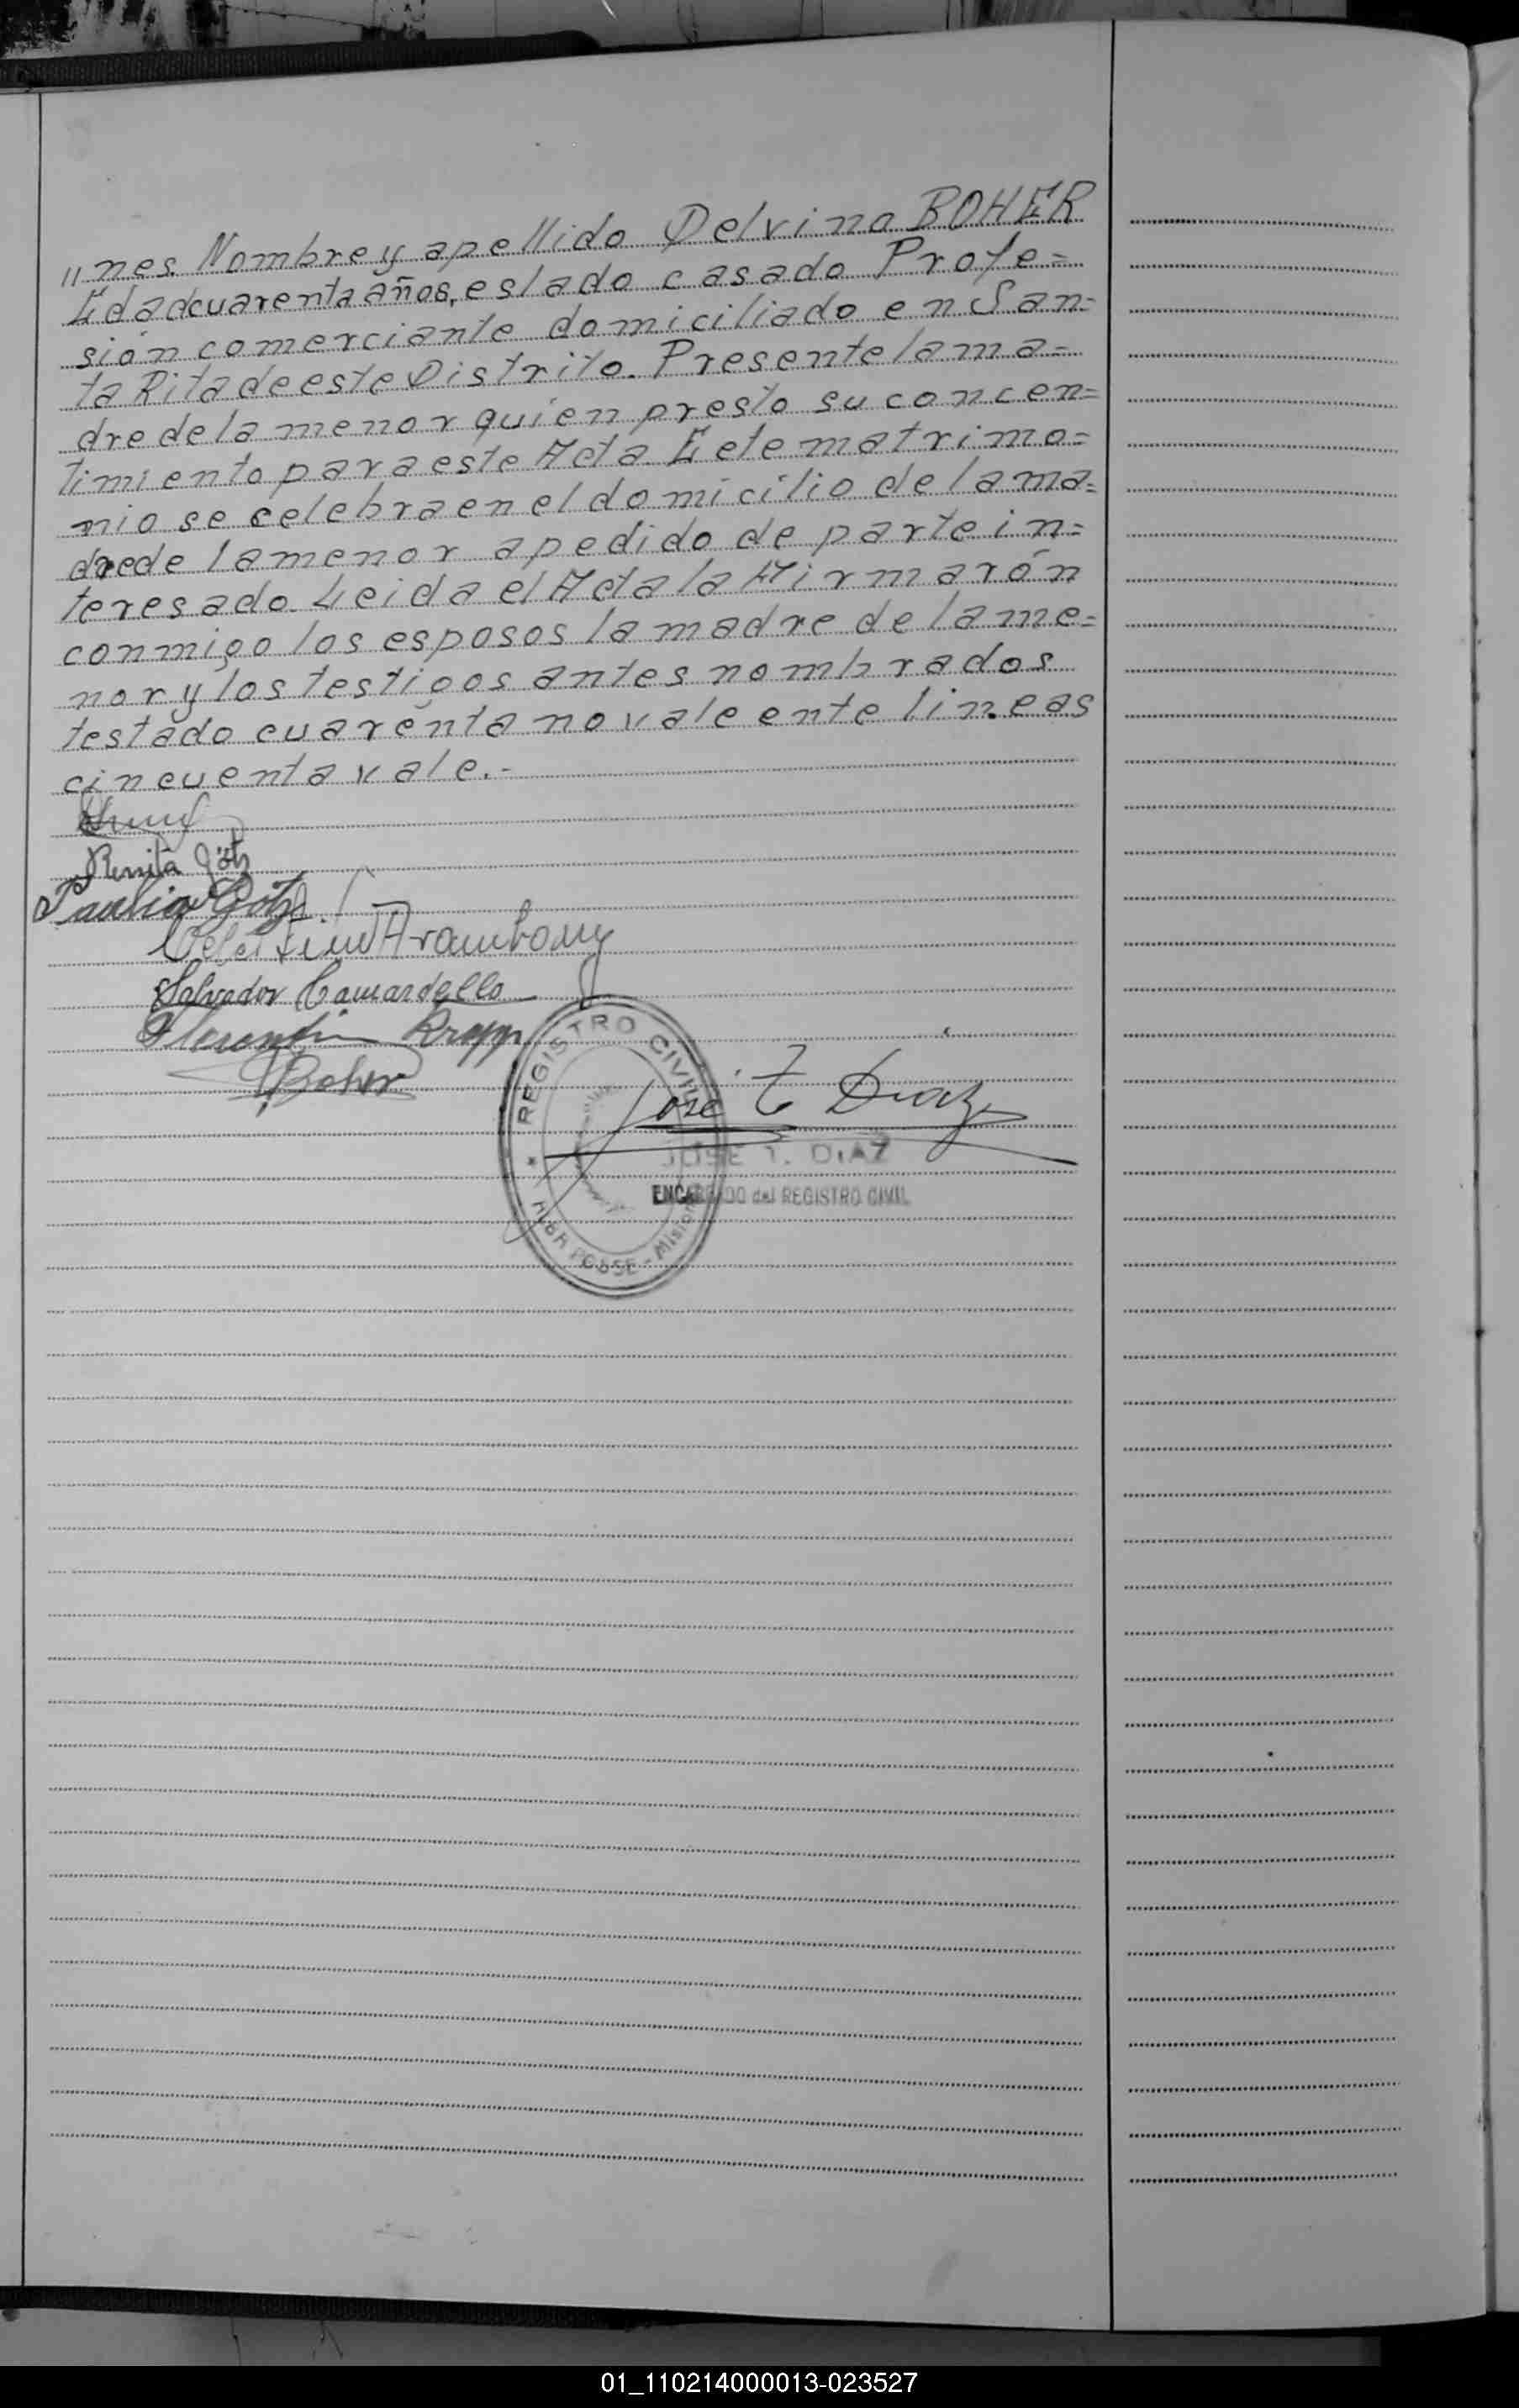 "nes. Nombre y apellido Delvino BOHER
Edad cuarenta años, estado casado Profe=
sión comerciante domiciliado en San=
ta Rita de este Distrito. Presente la ma=
dre de la menor quien presto su concen=
timiento para este Acta. Eete matrimo=
nio se celebra en el domicilio de la ma=
drede la menor a pedido de parte in=
teresado. Leida el Acta la Firmarón
conmigo los esposos la madre de la me=
nor y los testigos antes nombrados
testado cuarenta no vale ente lineas
cincuenta vale.-
Götz
Götz
Salvador Camardello
Boher
José T Diaz
REGISTRO CIVIL
JOSE T. DIAZ
ENCARGADO del REGISTRO CIVIL
ALBA POSSE - Misiones
01_110214000013-023527